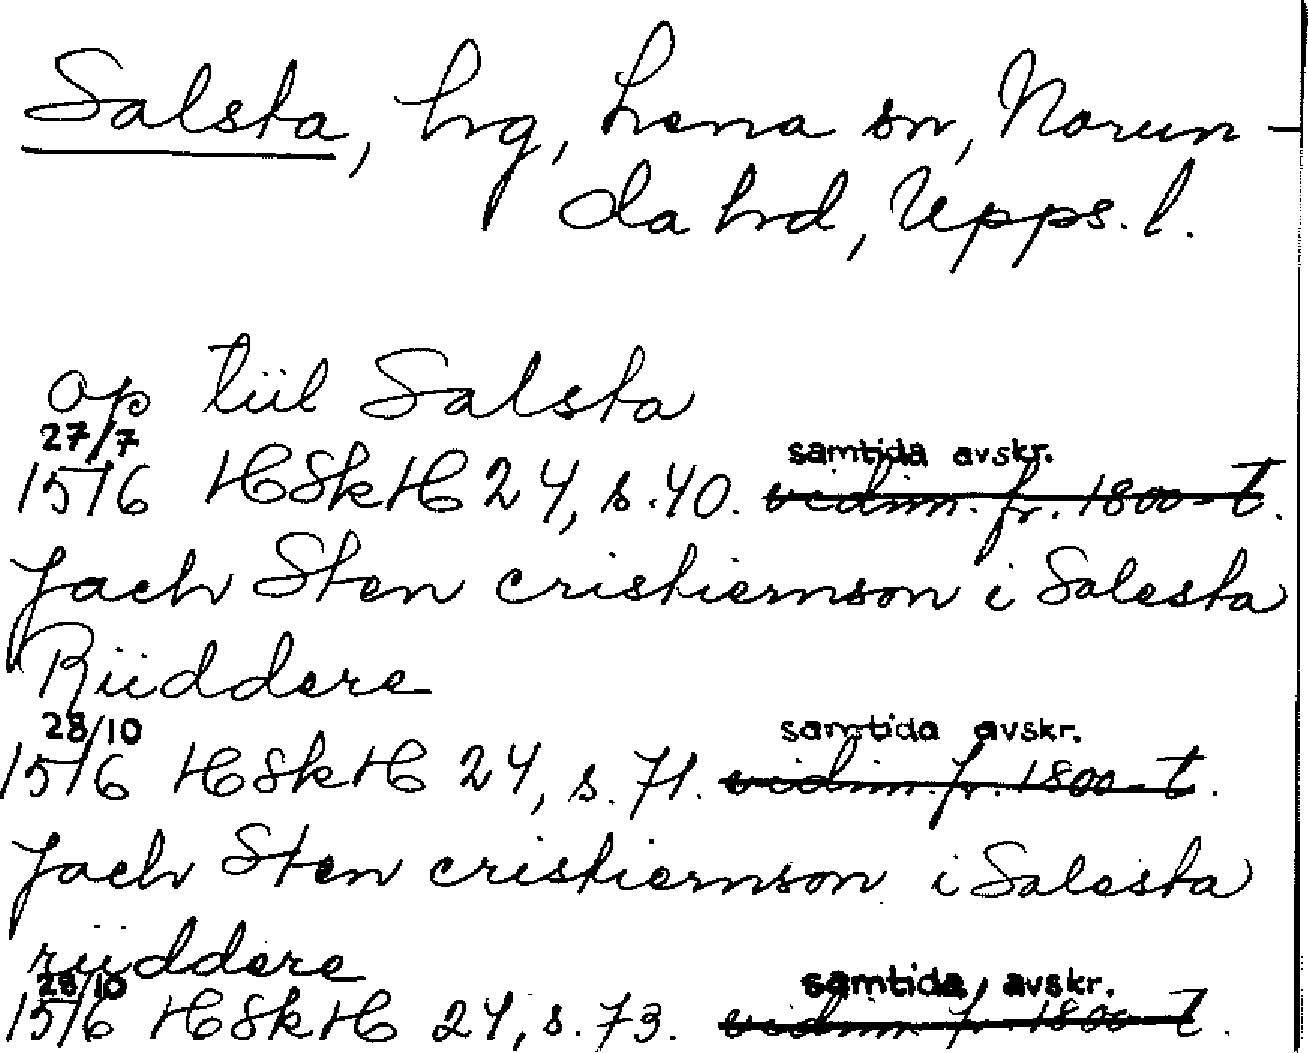 Salsta, hg, Lena sn, Norun-
da hd, Upps. l.
op tiil Salsta
27/7 samtida avskr.
1516 HSkH 24, s. 40. vidim. fr. 1800-t.
Jach Sten cristiernson i Salesta
Riiddere
28/10 samtida avskr.
1516 HSkH 24, s. 71. vidim. fr. 1800-t.
Jach Sten cristiernson i Salesta
riiddere
28/10 samtida avskr.
1516 HSkH 24, s. 73. vidim. fr. 1800-t.